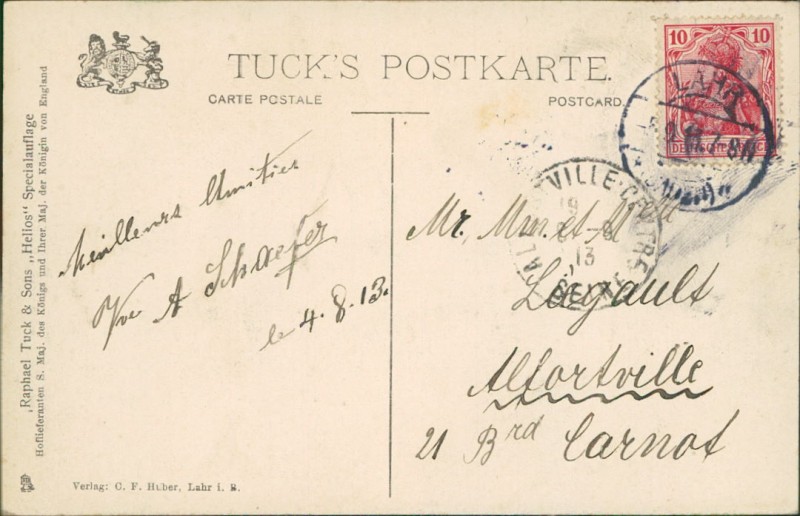 TUCK'S POSTKARTE.
CARTE POSTALE
POSTCARD.
10 10
DEUTSCHES REICH
LAHR
ALFORTVILLE-CENTRE
13
SEINE
"Raphael Tuck & Sons "Helios" Specialauflage
Hoflieferanten S. Maj. des Königs und Ihrer Maj. der Königin von England
Meilleures Amitiés
A Schaefer
le 4.8.13.
Mr.
Lagault
Alfortville
21 Brd Carnot
Verlag: C. F. Huber, Lahr i. B.